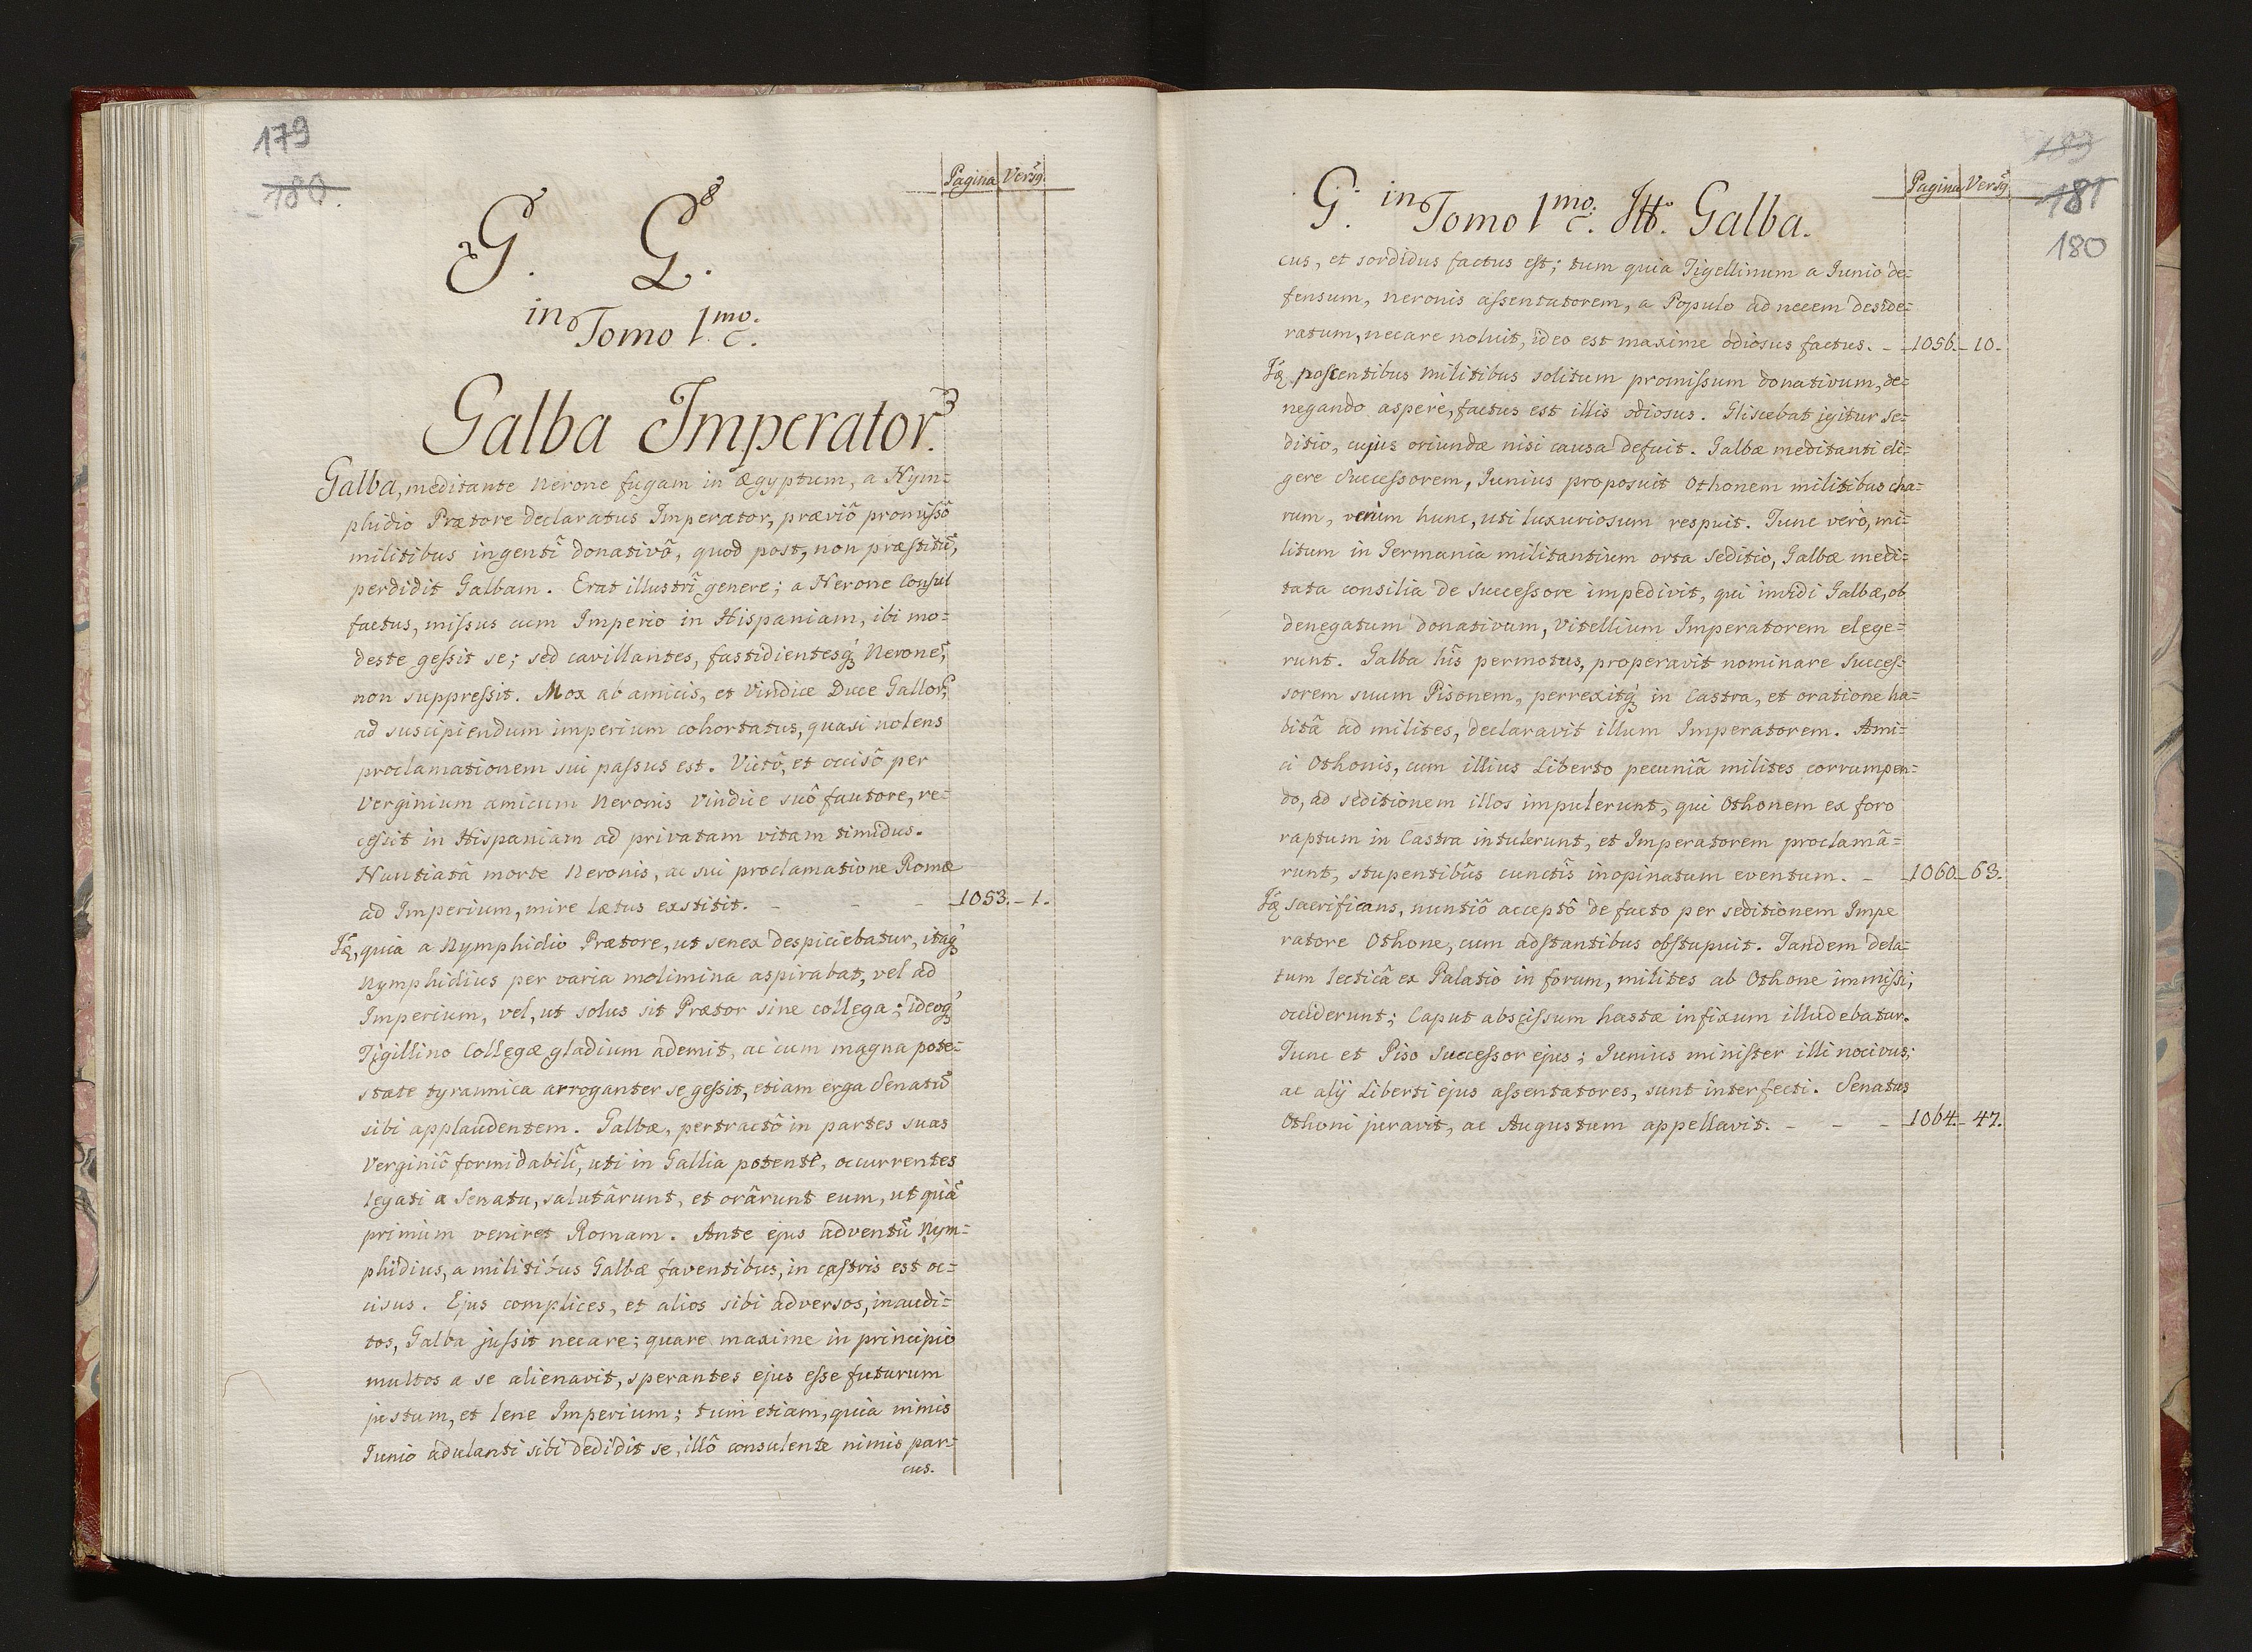 179
180.
Pagina Versq.
G. G.
in Tomo 1.mo c.
Galba Imperator.
Galba, meditante Nerone fugam in ægyptum, a Nym=
phidio Prætore declaratus Imperator, præviô promissô
militibus ingentî donativô, quod post, non præstitũ,
perdidit Galbam. Erat illustrî genere; a Nerone Consul
factus, missus cum Imperio in Hispaniam, ibi mo=
deste gessit se; sed cavillantes, fastidientesq́ Neronẽ,
non suppressit. Mox ab amicis, et Vindice Duce Gallor,
ad suscipiendum imperium cohortatus, quasi nolens
proclamationem sui passus est. Victô, et occisô per
Verginium amicum Neronis Vindice suô fautore, re=
cessit in Hispaniam ad privatam vitam timidus.
Nuntiatâ morte Neronis, ac sui proclamatione Romæ
ad Imperium, mire lætus exstitit. - - - 1053. - 1.
quia a Nymphidio Prætore, ut senex despiciebatur, itaq́
Nymphidius per varia molimina aspirabat, vel ad
Imperium, vel, ut solus sit Prætor sine collega; ideoq́
Tigillino Collegæ gladium ademit, ac cum magna pote=
state tyrannica arroganter se gessit, etiam erga Senatũ
sibi applaudentem. Galbæ, pertractô in partes suas
Verginiô formidabilî, uti in Gallia potentê, occurrentes
legati a Senatu, salutârunt, et orârunt eum, ut quã
primum veniret Romam. Ante ejus adventũ Nym=
phidius, a militibus Galbæ faventibus, in castris est oc=
cisus. Ejus complices, et alios sibi adversos, inaudi=
tos, Galba jussit necare; quare maxime in principio
multos a se alienavit, sperantes ejus esse futurum
justum, et lene Imperium; tum etiam, quia nimis
Junio adulanti sibi dedidit se, illô consulente nimis par=
cus.
183
181
180
Pagina Versq
G. in Tomo 1mo. c. Itt. Galba.
cus, et sordidus factus est; tum quia Tigellinum a Junio de=
fensum, Neronis assentatorem, a Populo ad necem deside=
ratum, necare noluit, ideo est maxime odiosus factus. - 1056. - 10.
poscentibus militibus solitum promissum donativum, de=
negando asperè, factus est illis odiosus. Gliscebat igitur se=
ditio, cujus oriundæ nisi causa defuit. Galbæ meditanti eli=
gere Successorem, Junius proposuit Othonem militibus cha=
rum, verum hunc, uti luxuriosum respuit. Tunc verò, mi=
litum in Germania militantium orta Seditio, Galbæ medi=
tata consilia de Successore impedivit, qui invidi Galbæ, ob
denegatum donativum, Vitellium Imperatorem elege=
runt. Galba hîs permotus, properavit nominare Succes=
sorem suum Pisonem, perrexitq́ in Castra, et oratione ha=
bitâ ad milites, declaravit illum Imperatorem. Ami=
ci Othonis, cum illius Liberto pecuniâ milites corrumpen=
do, ad seditionem illos impulerunt, qui Othonem ex foro
raptum in Castra intulerunt, et Imperatorem proclamâ=
runt, stupentibûs cunctîs inopinatum eventum. - 1060. - 63.
sacrificans, nuntiô acceptô de facto per seditionem Impe
ratore Othone, cum adstantibus obstupuit. Tandem dela=
tum lecticâ ex Palatio in forum, milites ab Othone immissi,
occiderunt; Caput abscissum hastæ infixum illudebatur.
Tunc et Piso Successor ejus; Junius minister illi nocivus;
ac alij Liberti ejus assentatores, sunt interfecti. Senatus
Othoni juravit, ac Augustum appellavit. - - - 1064. - 47.